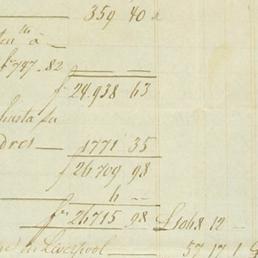 359 40
à —
747 - 82
f 24.938 63
hasta fu
dros — 1771 35
f 26709 98
6 --
f 26715 98 £1068 12 —
in Liverpool — 57 17 1